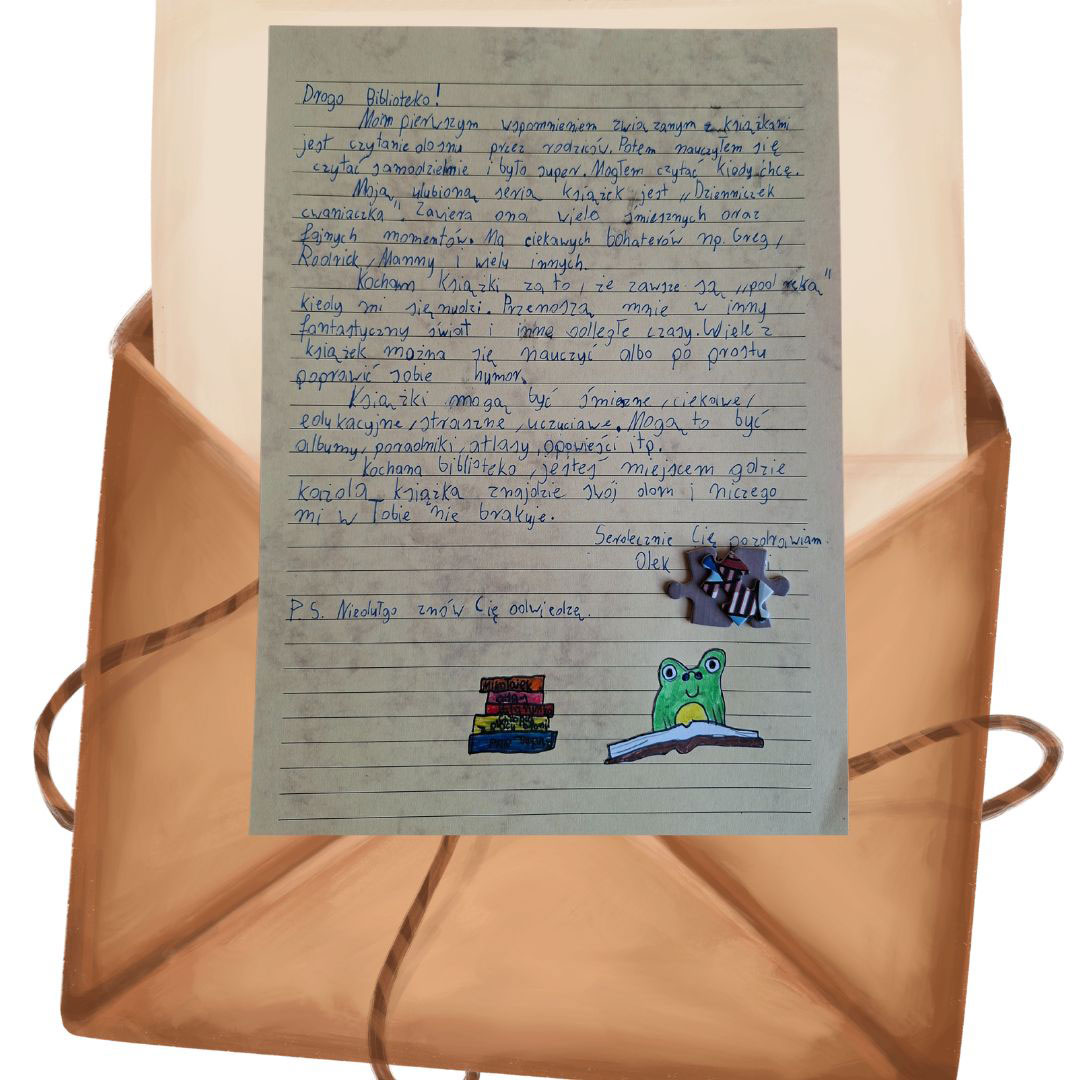 Drogo Biblioteko!
Moim pierwszym wspomnieniem związanym z książkami
jest czytanie do snu przez rodziców. Potem nauczyłem się
czytać samodzielnie i było super. Mogłem czytać kiedy chcę.
Moją ulubioną serią książek jest „Dzienniczek
cwaniaczka". Zawiera ona wiele śmiesznych oraz
fajnych momentów. Ma ciekawych bohaterów np. Greg,
Rodrick, Manny i wiely innych.
Kocham książki za to, że zawsze są „pod ręką"
kiedy mi się nudzi. Przenoszą mnie w inny
fantastyczny świat i inne odległe czasy. Wiele z
książek można się nauczyć albo po prostu
poprawić sobie humor.
Książki mogą być śmieszne, ciekawe,
edukacyjne, straszne, uczuciawe. Mogą to być
albumy, poradniki, atlasy, opowieści itp.
Kochana biblioteko, jesteś miejscem gdzie
każda książka znajdzie swój dom i niczego
mi w Tobie nie brakuje.
Serdecznie Cię pozdrawiam.
Olek
P.S. Niedługo znów Cię odwiedzę.
Mikołajek